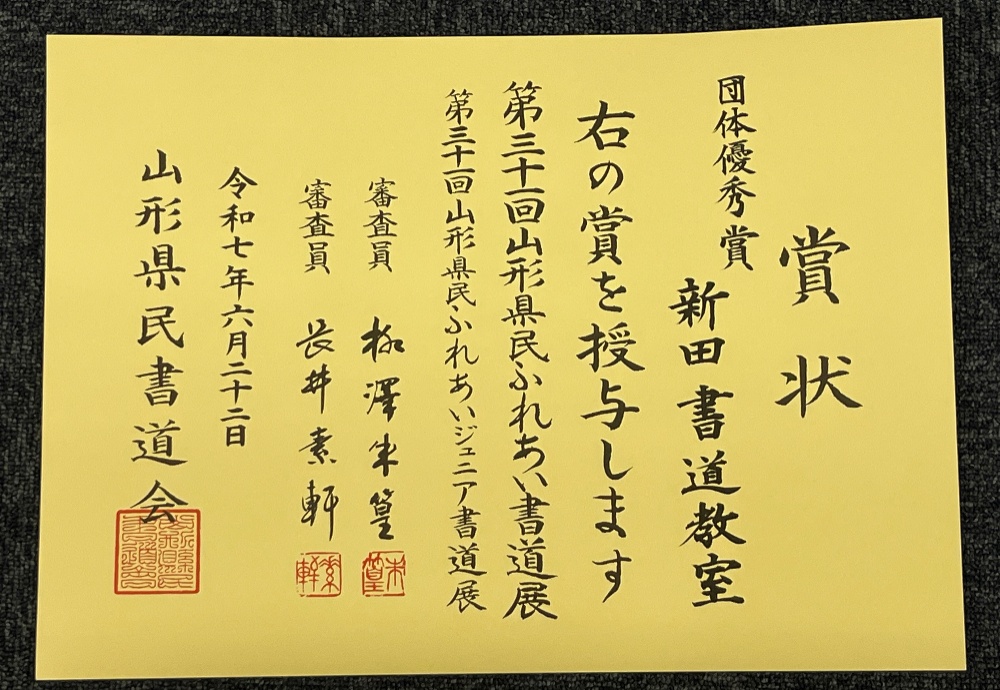 賞状
団体優秀賞
新田書道教室
右の賞を授与します
第三十一回山形県民ふれあい書道展
第三十一回山形県民ふれあいジュニア書道展
審査員 柳澤朱篁
審査員 長井素軒
令和七年六月二十二日
山形県民書道会